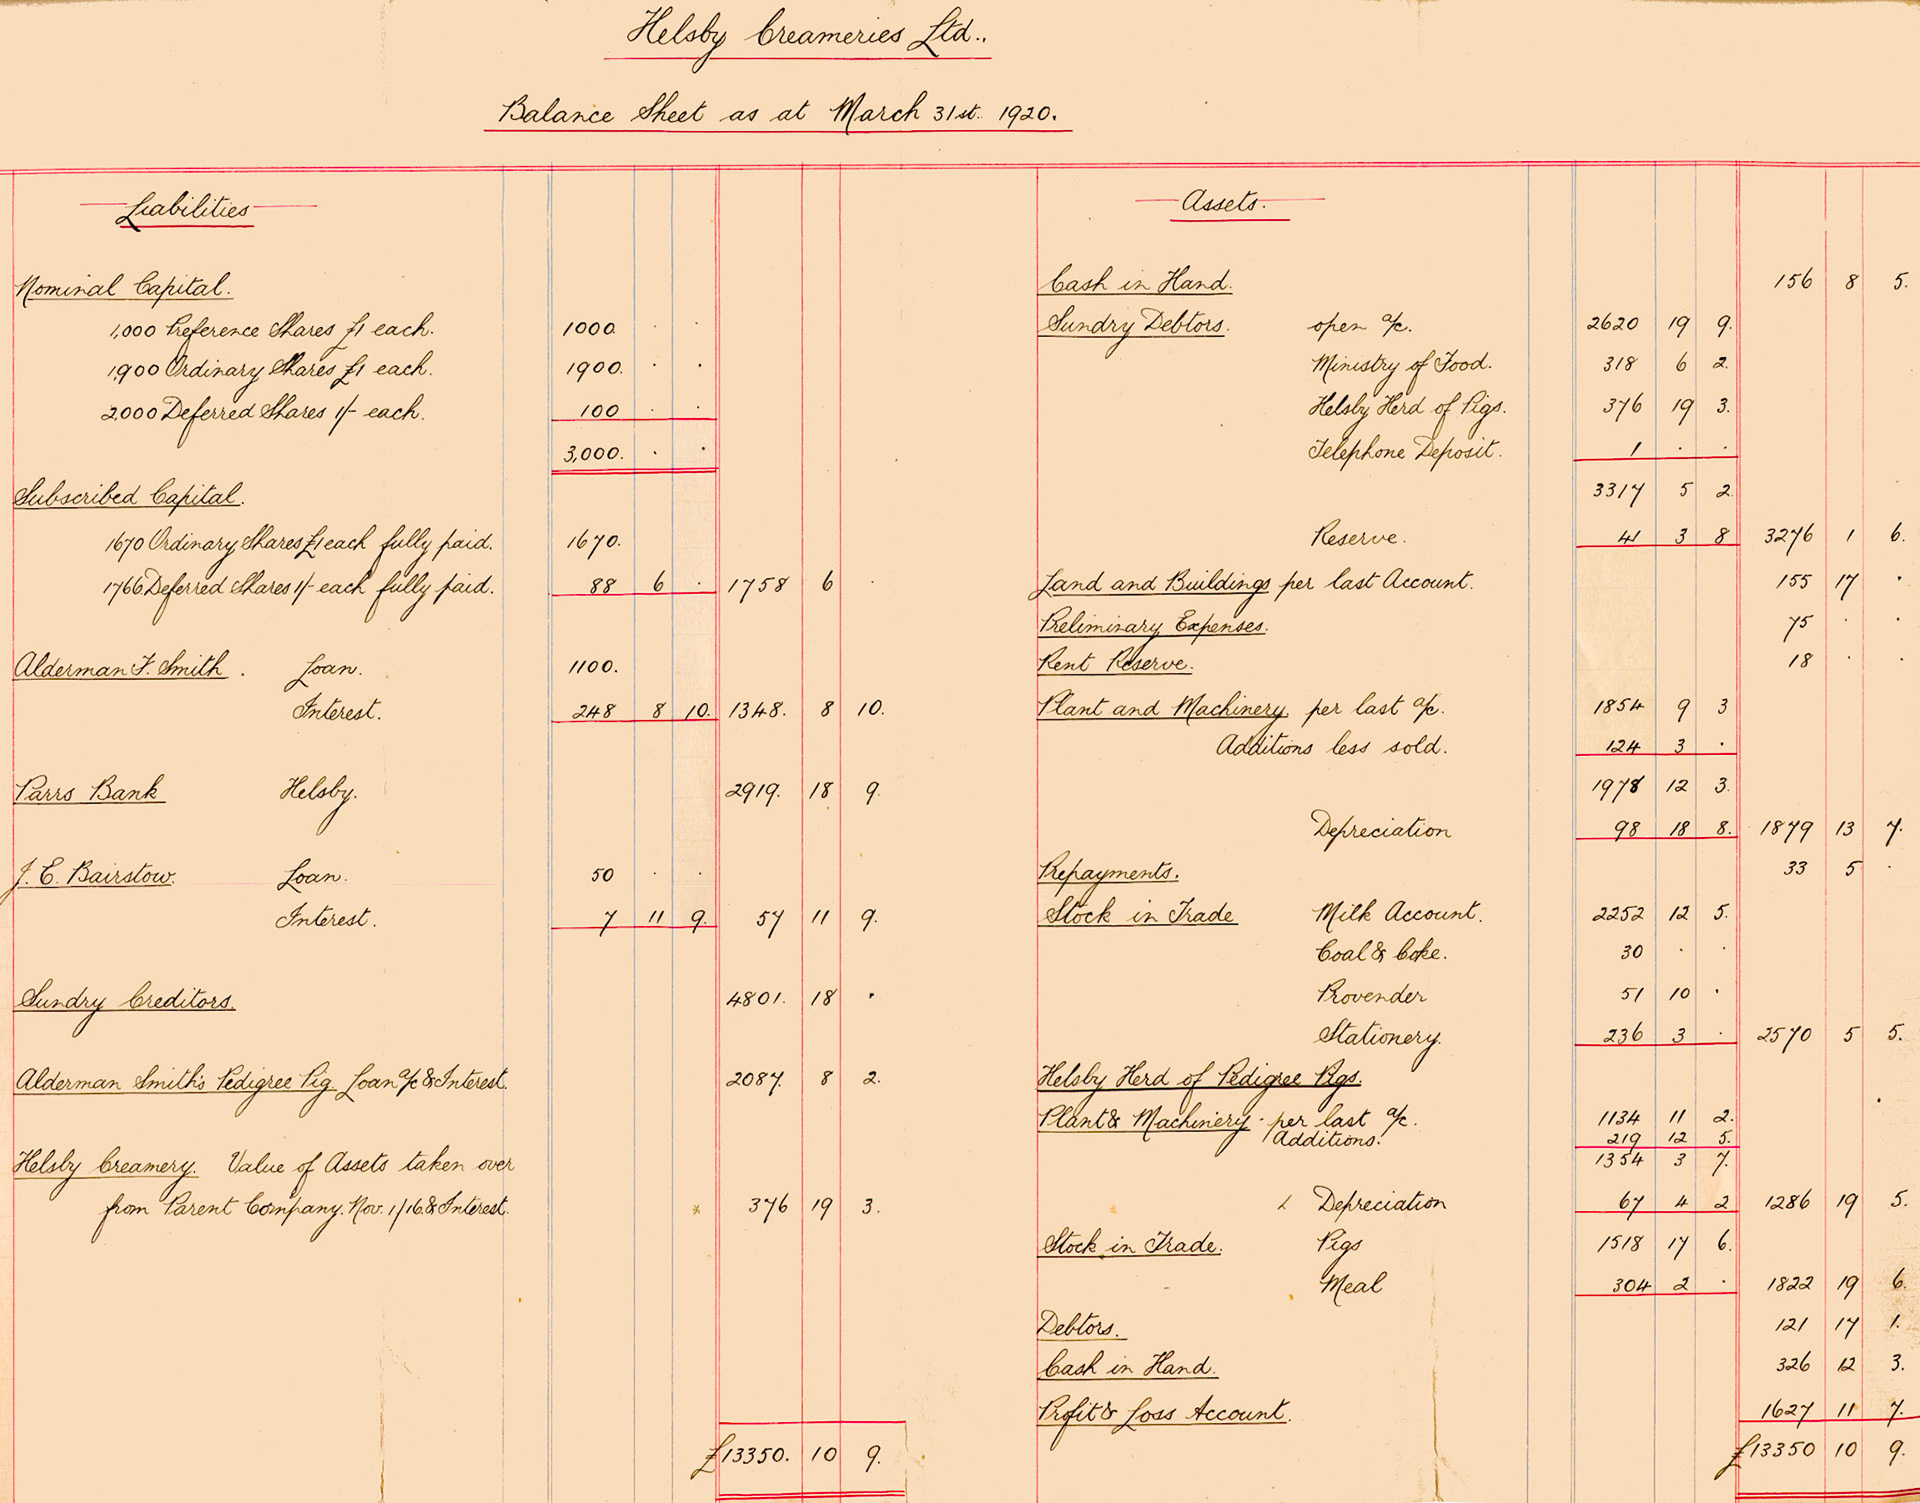 Helsby Creameries Ltd..
Balance Sheet as at March 31st. 1920.
Liabilities
Nominal Capital.
1,000 Preference Shares £1 each. 1000 . .
1,900 Ordinary Shares £1 each. 1900. . .
2,000 Deferred Shares 1/- each. 100 . .
3,000. . .
Subscribed Capital.
1670 Ordinary Shares £1 each fully paid. 1670.
1766 Deferred Shares 1/- each fully paid. 88 6 . 1758 6 .
Alderman F. Smith. Loan. 1100.
Interest. 248 8 10. 1348. 8 10.
Parrs Bank Helsby. 2919. 18 9.
J. E. Bairstow. Loan. 50 . .
Interest. 7 11 9. 57 11 9.
Sundry Creditors. 4801. 18 .
Alderman Smith's Pedigree Pig Loan a/c & Interest. 2087. 8 2.
Helsby Creamery. Value of Assets taken over
from Parent Company. Nov. 1/16 & Interest. 376 19 3.
£13350. 10 9.
Assets.
Cash in Hand. 156 8 5.
Sundry Debtors. open a/c. 2620 19 9.
Ministry of Food. 318 6 2.
Helsby Herd of Pigs. 376 19 3.
Telephone Deposit. 1 . .
3317 5 2.
Reserve. 41 3 8 3276 1 6.
Land and Buildings per last Account. 155 17 .
Preliminary Expenses. 75 . .
Rent Reserve. 18 . .
Plant and Machinery per last a/c. 1854 9 3
Additions less sold. 124 3 .
1978 12 3.
Depreciation 98 18 8. 1879 13 7.
Prepayments. 33 5 .
Stock in Trade Milk Account. 2252 12 5.
Coal & Coke. 30 . .
Provender 51 10 .
Stationery. 236 3 . 2570 5 5.
Helsby Herd of Pedigree Pigs.
Plant & Machinery - per last a/c. 1134 11 2.
Additions. 219 12 5.
1354 3 7.
Depreciation 67 4 2 1286 19 5.
Stock in Trade. Pigs 1518 17 6.
Meal 304 2 . 1822 19 6.
Debtors. 121 17 1.
Cash in Hand. 326 12 3.
Profit & Loss Account. 1627 11 7.
£13350 10 9.